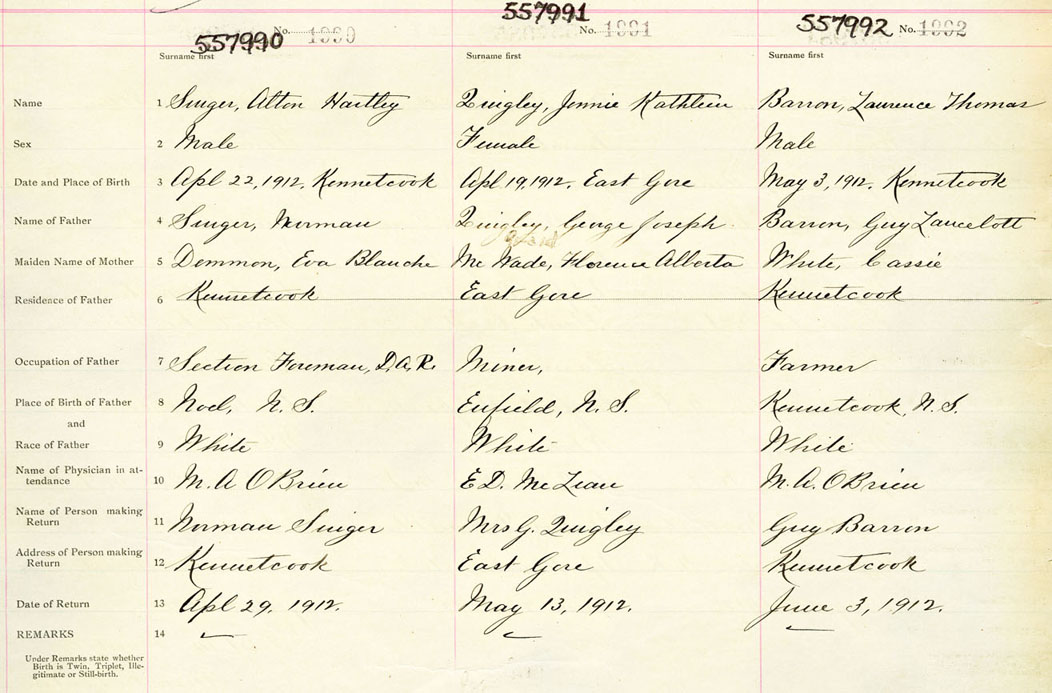 557990 No. 1990 557991 No. 1991 557992 No. 1992
Surname first Surname first Surname first
Name 1 Singer, Alton Hartley Quigley, Jennie Kathleen Barron, Laurence Thomas
Sex 2 Male Female Male
Date and Place of Birth 3 Apl 22, 1912. Kennetcook Apl 19, 1912. East Gore May 3, 1912. Kennetcook
Name of Father 4 Singer, Norman Quigley, George Joseph. Barron, Guy Lancelott
Maiden Name of Mother 5 Demmon, Eva Blanche Mc Wade, Florence Alberta White, Cassie
Residence of Father 6 Kennetcook East Gore Kennetcook
Occupation of Father 7 Section Foreman, D.A.R. Miner, Farmer
Place of Birth of Father 8 Noel, N.S. Enfield, N.S. Kennetcook, N.S.
and
Race of Father 9 White White White
Name of Physician in at-
tendance 10 M. A O'Brien E D. McLean M. A. O'Brien
Name of Person making
Return 11 Norman Singer Mrs G. Quigley Guy Barron
Address of Person making
Return 12 Kennetcook East Gore Kennetcook
Date of Return 13 Apl 29, 1912. May 13, 1912. June 3, 1912.
REMARKS 14
Under Remarks state whether
Birth is Twin, Triplet, Ille-
gitimate or Still-birth.